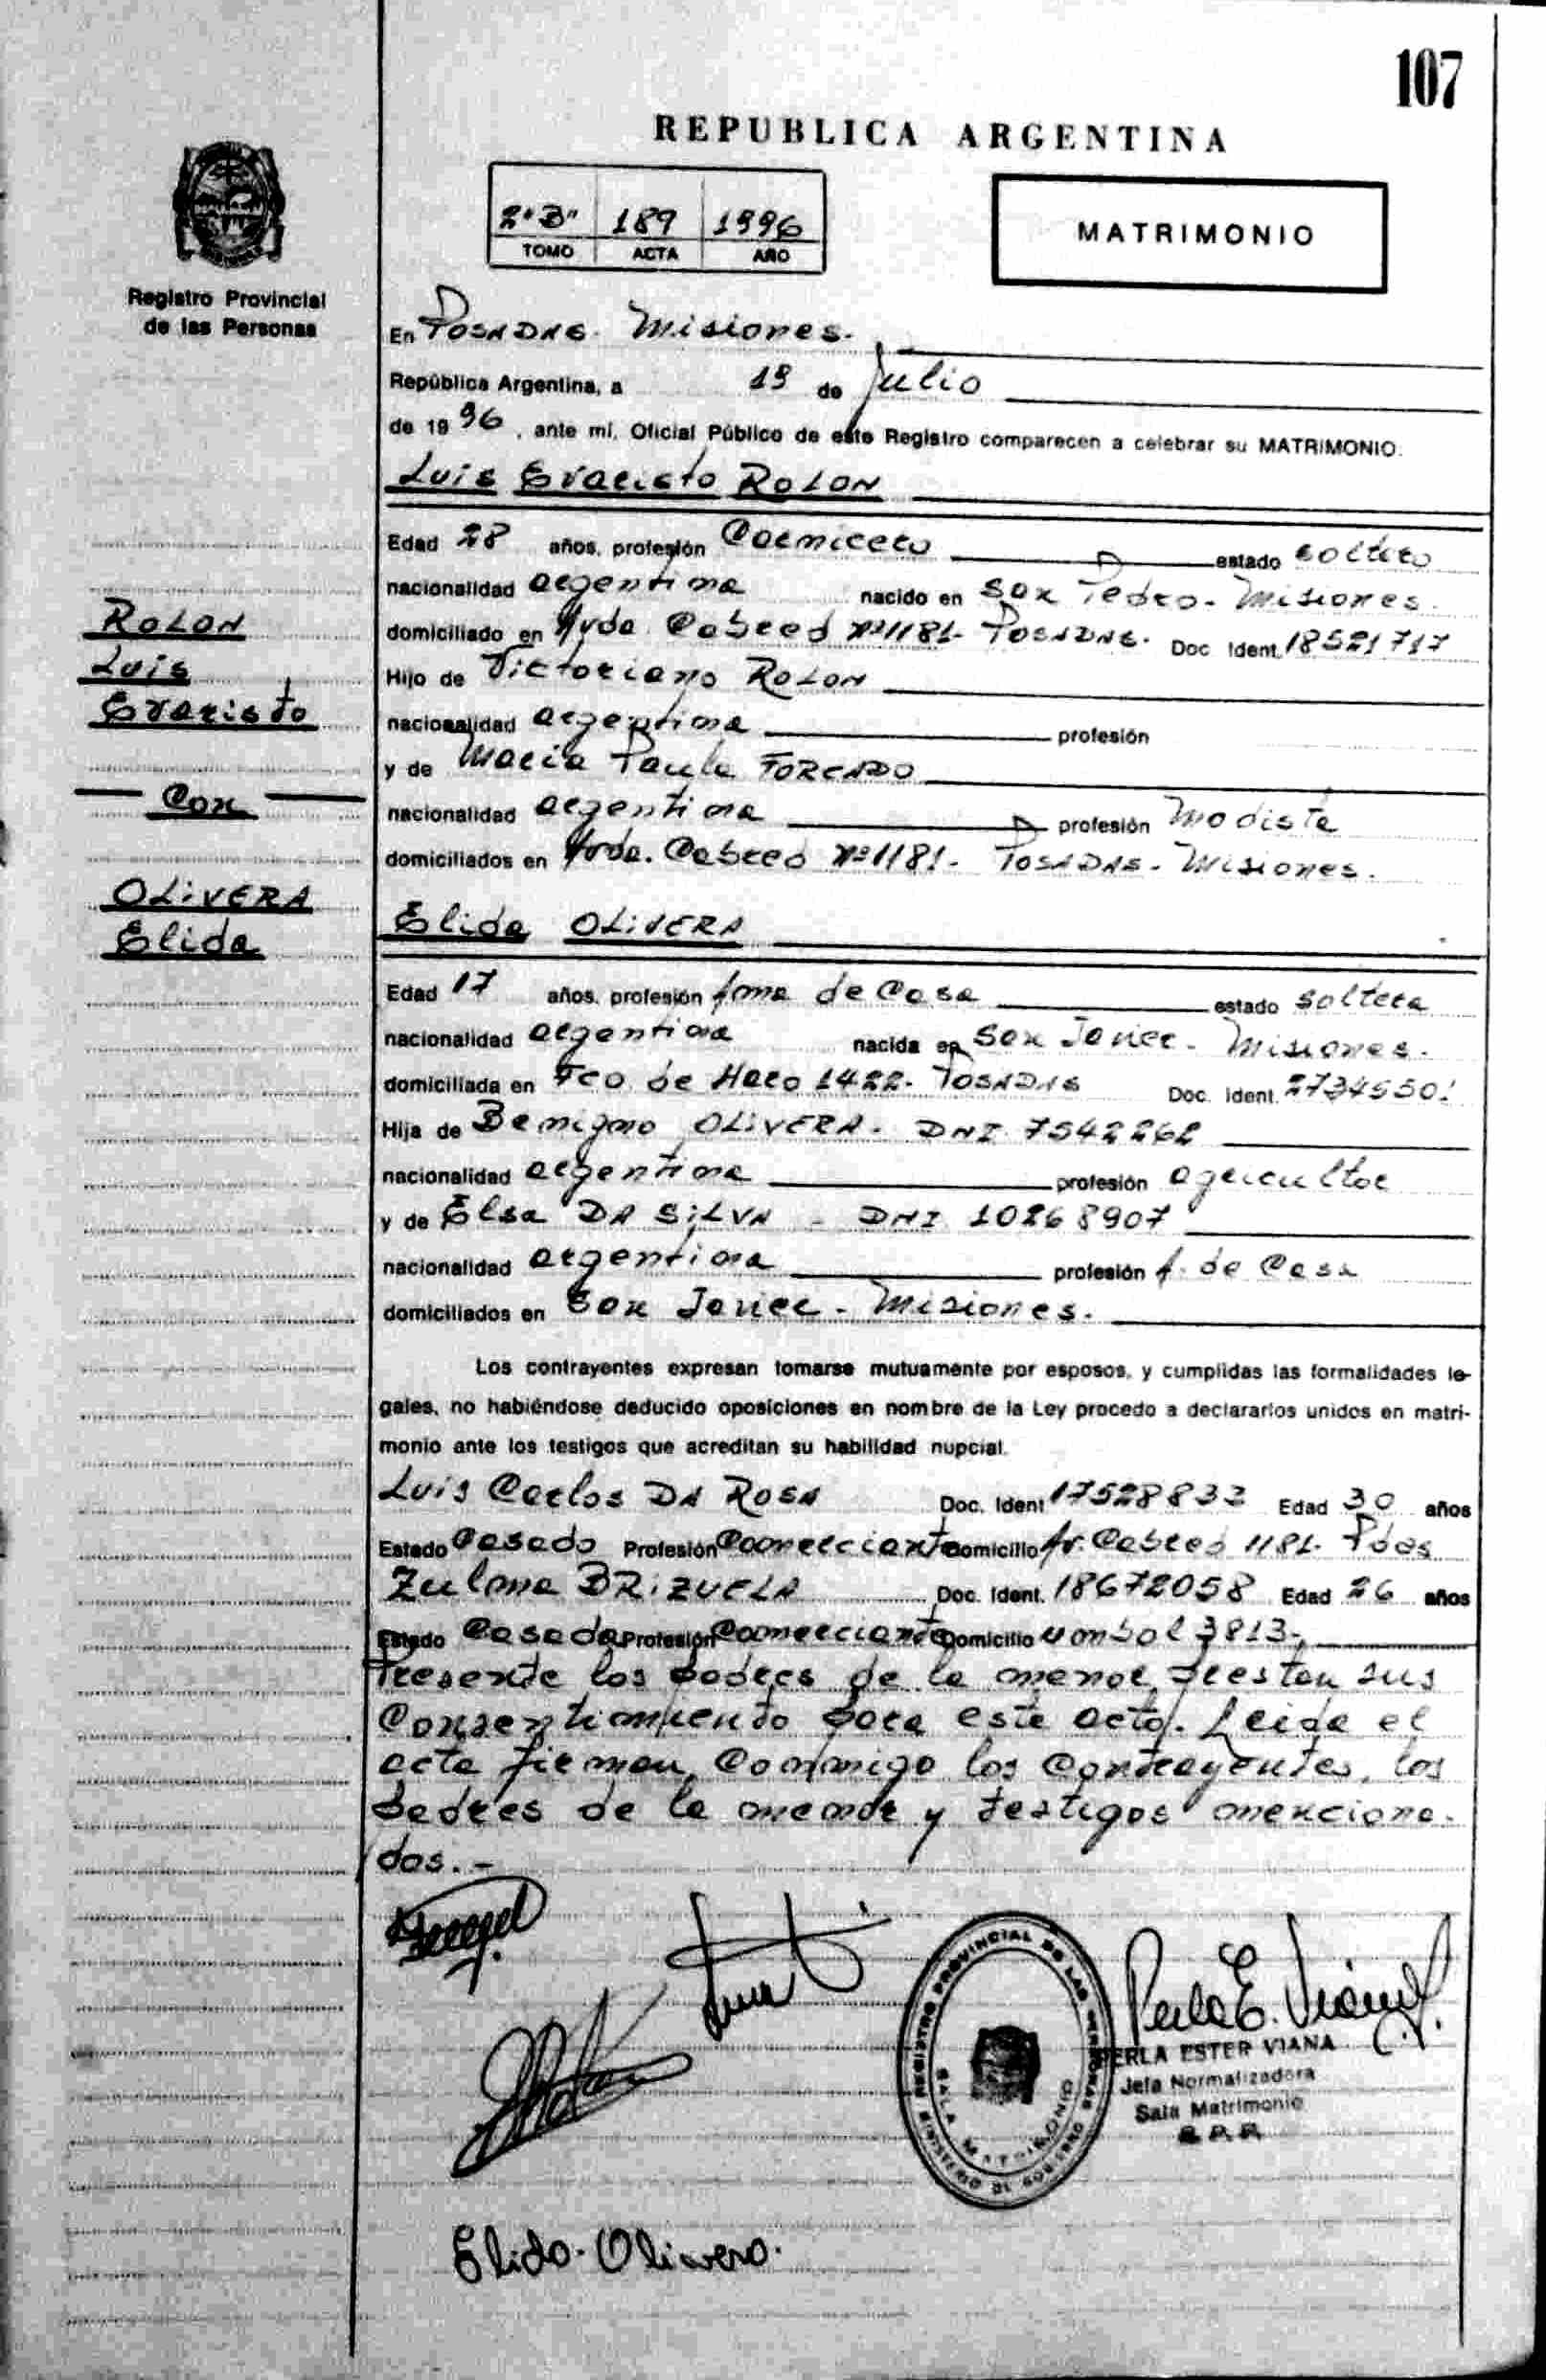 107
REPUBLICA ARGENTINA
2º "B" 189 1996
TOMO ACTA AÑO
MATRIMONIO
Registro Provincial
de las Personas
En POSADAS - Misiones.
República Argentina, a 19 de Julio
de 1996, ante mí, Oficial Público de este Registro comparecen a celebrar su MATRIMONIO:
Luis Evaristo ROLON
Edad 28 años, profesión Carnicero estado soltero
nacionalidad argentina nacido en San Pedro - Misiones.
domiciliado en Avda. Cabred Nº 1181 - POSADAS. Doc. Ident. 18521717
Hijo de Victoriano ROLON
nacionalidad argentina profesión
y de Maria Paula FORCADO
nacionalidad argentina profesión Modista
domiciliados en Avda. Cabred Nº 1181 - POSADAS - Misiones.
Elida OLIVERA
Edad 17 años, profesión Ama de Casa estado soltera
nacionalidad argentina nacida en San Javier - Misiones.
domiciliada en Fco. de Haro 1422 - POSADAS Doc. Ident.
Hija de Benigno OLIVERA - DNI 7542262
nacionalidad argentina profesión agricultor
y de Elsa DA SILVA - DNI 10268907
nacionalidad argentina profesión A. de Casa
domiciliados en San Javier - Misiones.
Los contrayentes expresan tomarse mutuamente por esposos, y cumplidas las formalidades le-
gales, no habiéndose deducido oposiciones en nombre de la Ley procedo a declararlos unidos en matri-
monio ante los testigos que acreditan su habilidad nupcial.
Luis Carlos DA ROSA Doc. Ident. 17528833 Edad 30 años
Estado Casado Profesión Comerciante Domicilio Av. Cabred 1181 - Pdas
Zulma BRIZUELA Doc. Ident. 18672058 Edad 26 años
Estado Casada Profesión Comerciante Domicilio 3813-
Presente los padres de la menor, prestan sus
Consentimiento para este acto. Leida el
acta firman conmigo los Contrayentes, los
padres de la menor y testigos menciona-
dos.-
ROLON
Luis
Evaristo
Con
OLIVERA
Elida
REGISTRO PROVINCIAL DE LAS PERSONAS
MINISTERIO DE GOBIERNO
SALA MATRIMONIO
Perla E. Viana
PERLA ESTER VIANA
Jefa Normalizadora
Sala Matrimonio
R. P. P.
Elida Olivera.